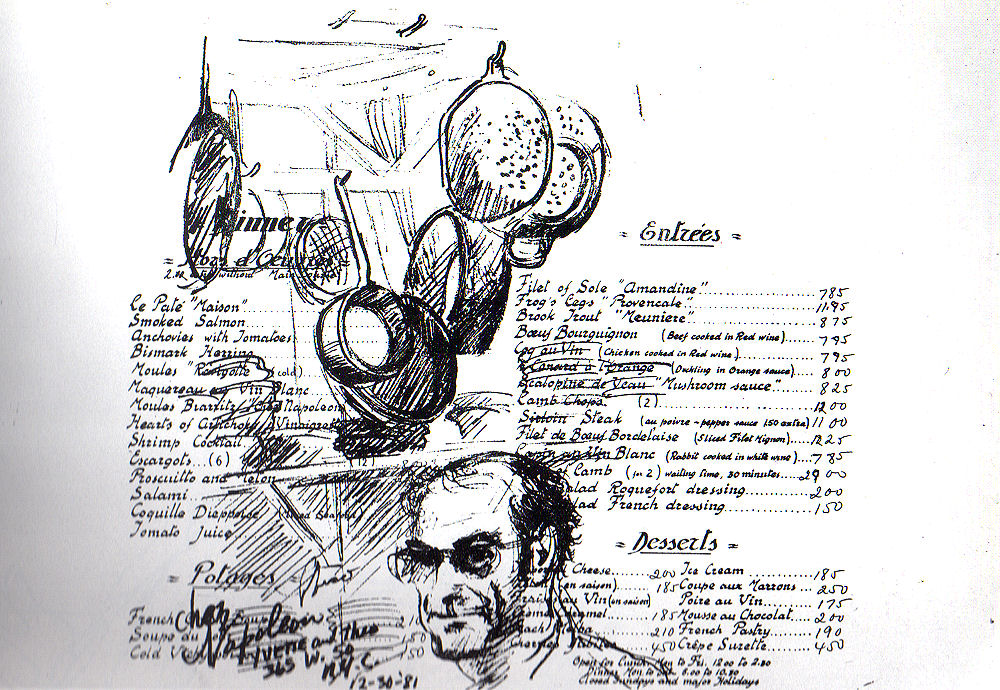 Dinner
= Hors d'Oeuvres =
without Main
Le Pate "Maison"
Smoked Salmon
Anchovies with Tomatoes
Bismark Herring
Moules "Ravigotte" (cold)
Maquereau au Vin Blanc
Moules Biarritz "Chez Napoleon"
Hearts of Artichoke Vinaigrette
Shrimp Cocktail
Escargots...(6) (12)
Proscuitto and Melon
Salami
Coquille Dieppoise
Tomato Juice
= Potages =
French
Soupe
Cold
Chez
Napoleon
365 W. 50
N.Y.C.
12-30-81
= Entrées =
Filet of Sole "Amandine" 7 85
Frog's Legs "Provencale" 11.95
Brook Trout "Meuniere" 8 75
Bœuf Bourguignon (Beef cooked in Red wine) 7 95
Coq au Vin (Chicken cooked in Red wine) 7 95
Canard à l'Orange (Duckling in Orange sauce) 8 00
Scalopine de Veau "Mushroom sauce" 8 25
Lamb Chops (2) 12 00
Sirloin Steak (au poivre - pepper sauce 150 extra) 11 00
Filet de Bœuf Bordelaise (Sliced Filet Mignon) 12 25
Lapin au Vin Blanc (Rabbit cooked in white wine) 7 85
Lamb (for 2) waiting time, 30 minutes 29 00
Roquefort dressing 2 00
French dressing 1 50
= Desserts =
Cheese 2 00 Ice Cream 1 85
(en saison) 1 85 Coupe aux Marrons 2 50
au Vin (en saison) Poire au Vin 1 75
Caramel 1 85 Mousse au Chocolat 2 00
2 10 French Pastry 1 90
Jubilée 4 50 Crêpe Suzette 4 50
Open for Lunch Mon to Fri. 12.00 to 2.30
Dinner Mon to Sat. 5.00 to 10.30
Closed Sundays and major Holidays